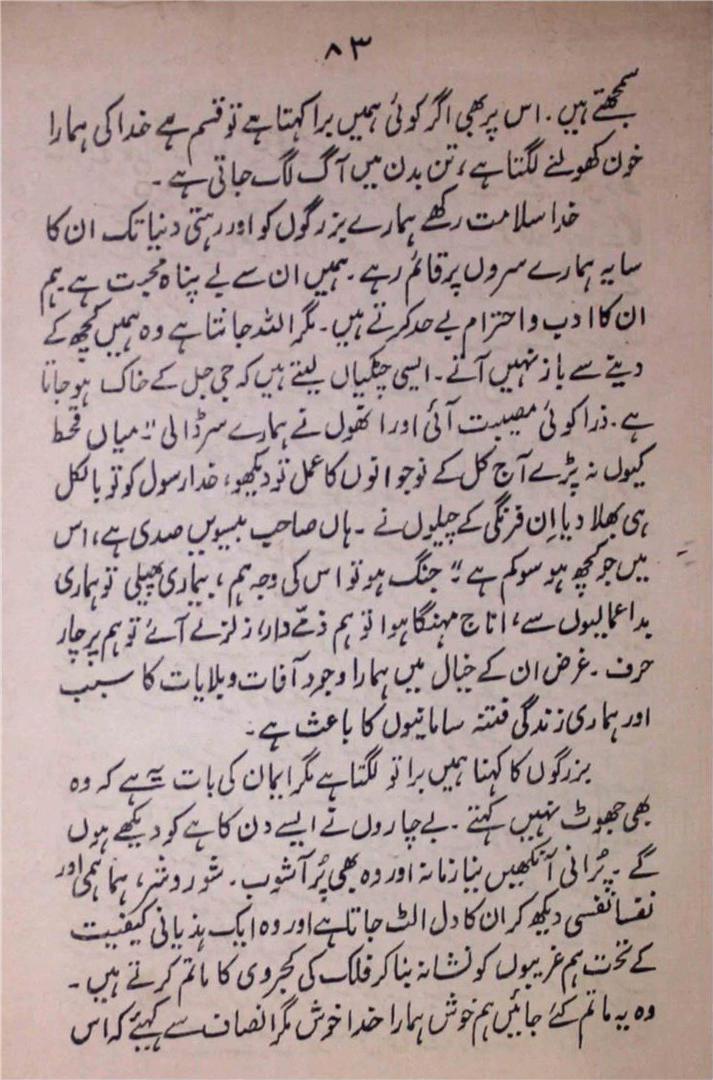 ۸۳
سمجھتے ہیں۔ اس پر بھی اگر کوئی ہمیں برا کہتا ہے تو قسم ہے خدا کی ہمارا
خون کھولنے لگتا ہے، تن بدن میں آگ لگ جاتی ہے۔
خدا سلامت رکھے ہمارے بزرگوں کو اور رہتی دنیا تک ان کا
سایہ ہمارے سروں پر قائم رہے۔ ہمیں ان سے بے پناہ محبت ہے۔ ہم
ان کا ادب و احترام بے حد کرتے ہیں۔ مگر اللہ جانتا ہے وہ ہمیں کچھ کے
دینے سے باز نہیں آتے۔ ایسی چٹکیاں لیتے ہیں کہ جی جل کے خاک ہو جاتا
ہے۔ ذرا کوئی مصیبت آئی اور انھوں نے ہمارے سر ڈالی "میاں قحط
کیوں نہ پڑے آج کل کے نوجوانوں کا عمل تو دیکھو، خدا رسول کو تو بالکل
ہی بھلا دیا اِن فرنگی کے چیلوں نے۔ ہاں صاحب بیسویں صدی ہے، اس
میں جو کچھ ہو سو کم ہے" جنگ ہو تو اس کی وجہ ہم، بیماری پھیلی تو ہماری
بداعمالیوں سے، اناج مہنگا ہوا تو ہم ذمّے دار، زلزلے آئے تو ہم پر چار
حرف۔ غرض ان کے خیال میں ہمارا وجود آفات و بلایات کا سبب
اور ہماری زندگی فتنہ سامانیوں کا باعث ہے۔
بزرگوں کا کہنا ہمیں برا تو لگتا ہے مگر ایمان کی بات یہ ہے کہ وہ
بھی جھوٹ نہیں کہتے۔ بے چاروں نے ایسے دن کاہے کو دیکھے ہوں
گے۔ پُرانی آنکھیں نیا زمانہ اور وہ بھی پُر آشوب۔ شور و شر، ہما ہمی اور
نفسا نفسی دیکھ کر ان کا دل الٹ جاتا ہے اور وہ ایک ہذیانی کیفیت
کے تحت ہم غریبوں کو نشانہ بنا کر فلک کی کجروی کا ماتم کرتے ہیں۔
وہ یہ ماتم کئے جائیں ہم خوش ہمارا خدا خوش مگر انصاف سے کہئے کہ اس